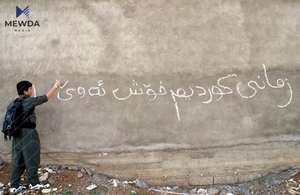 MEWDA
MEDIA
زمانی کوردیم خۆش ئەوێ